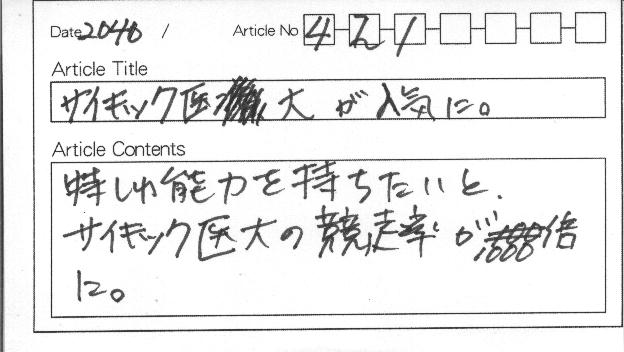 Date 2040 /
Article No 4 2 1
Article Title
サイキック医大が人気に。
Article Contents
特しゅ能力を持ちたいと、
サイキック医大の競走率が1000倍
に。